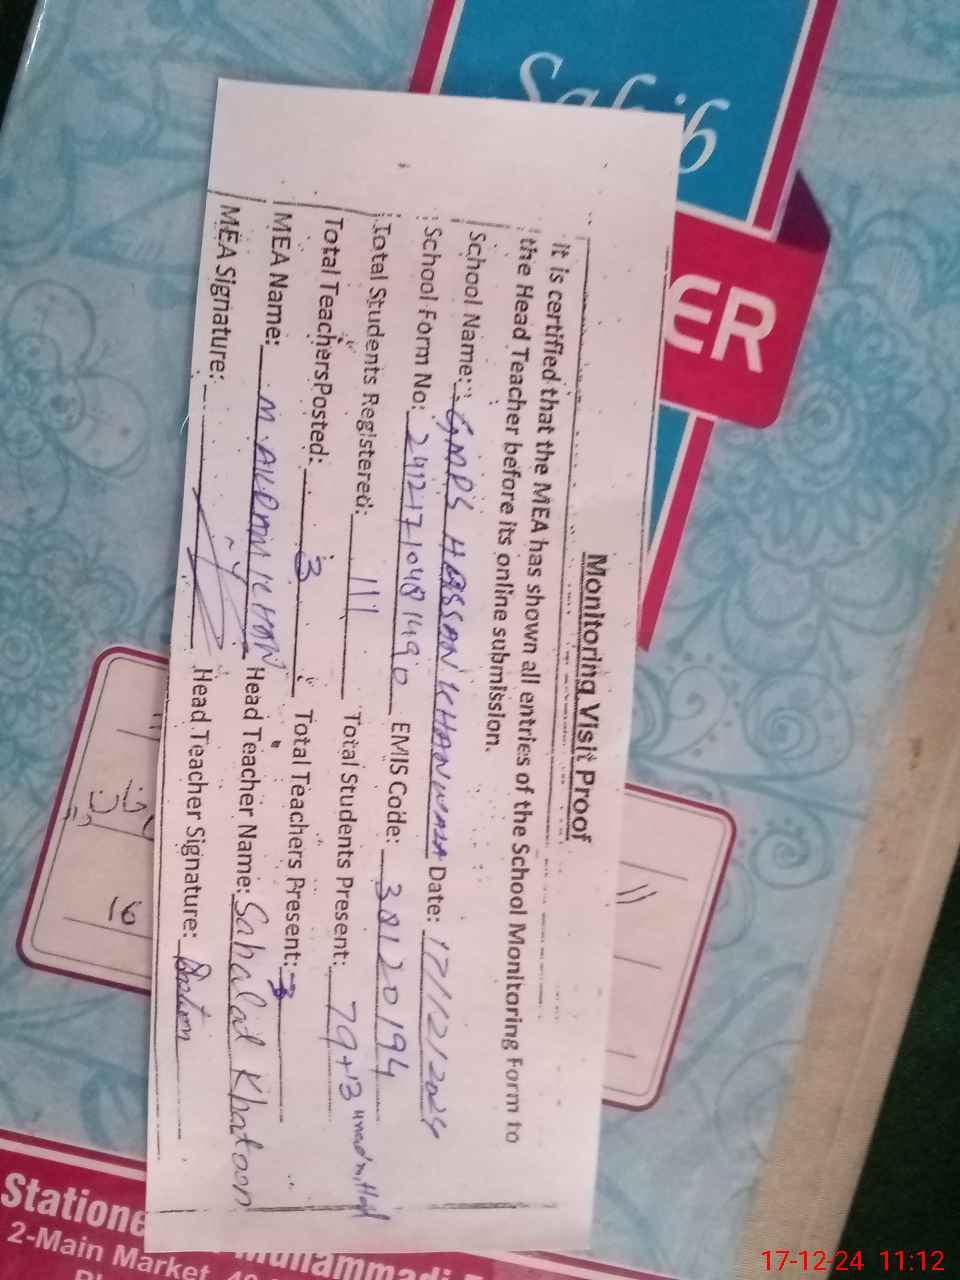 Sahib
ER
Monitoring Visit Proof
It is certified that the MEA has shown all entries of the School Monitoring Form to
the Head Teacher before its online submission.
School Name: GMPS HASSAN KHANWALA Date: 17/12/2024
School Form No: 24121710481490 EMIS Code: 38120194
Total Students Registered: 111 Total Students Present: 79+13 unadmitted
Total TeachersPosted: 3 Total Teachers Present: 3
MEA Name: M AKRAM KHAN Head Teacher Name: Khatoon
MEA Signature: Head Teacher Signature:
2-Main Market
17-12-24 11:12